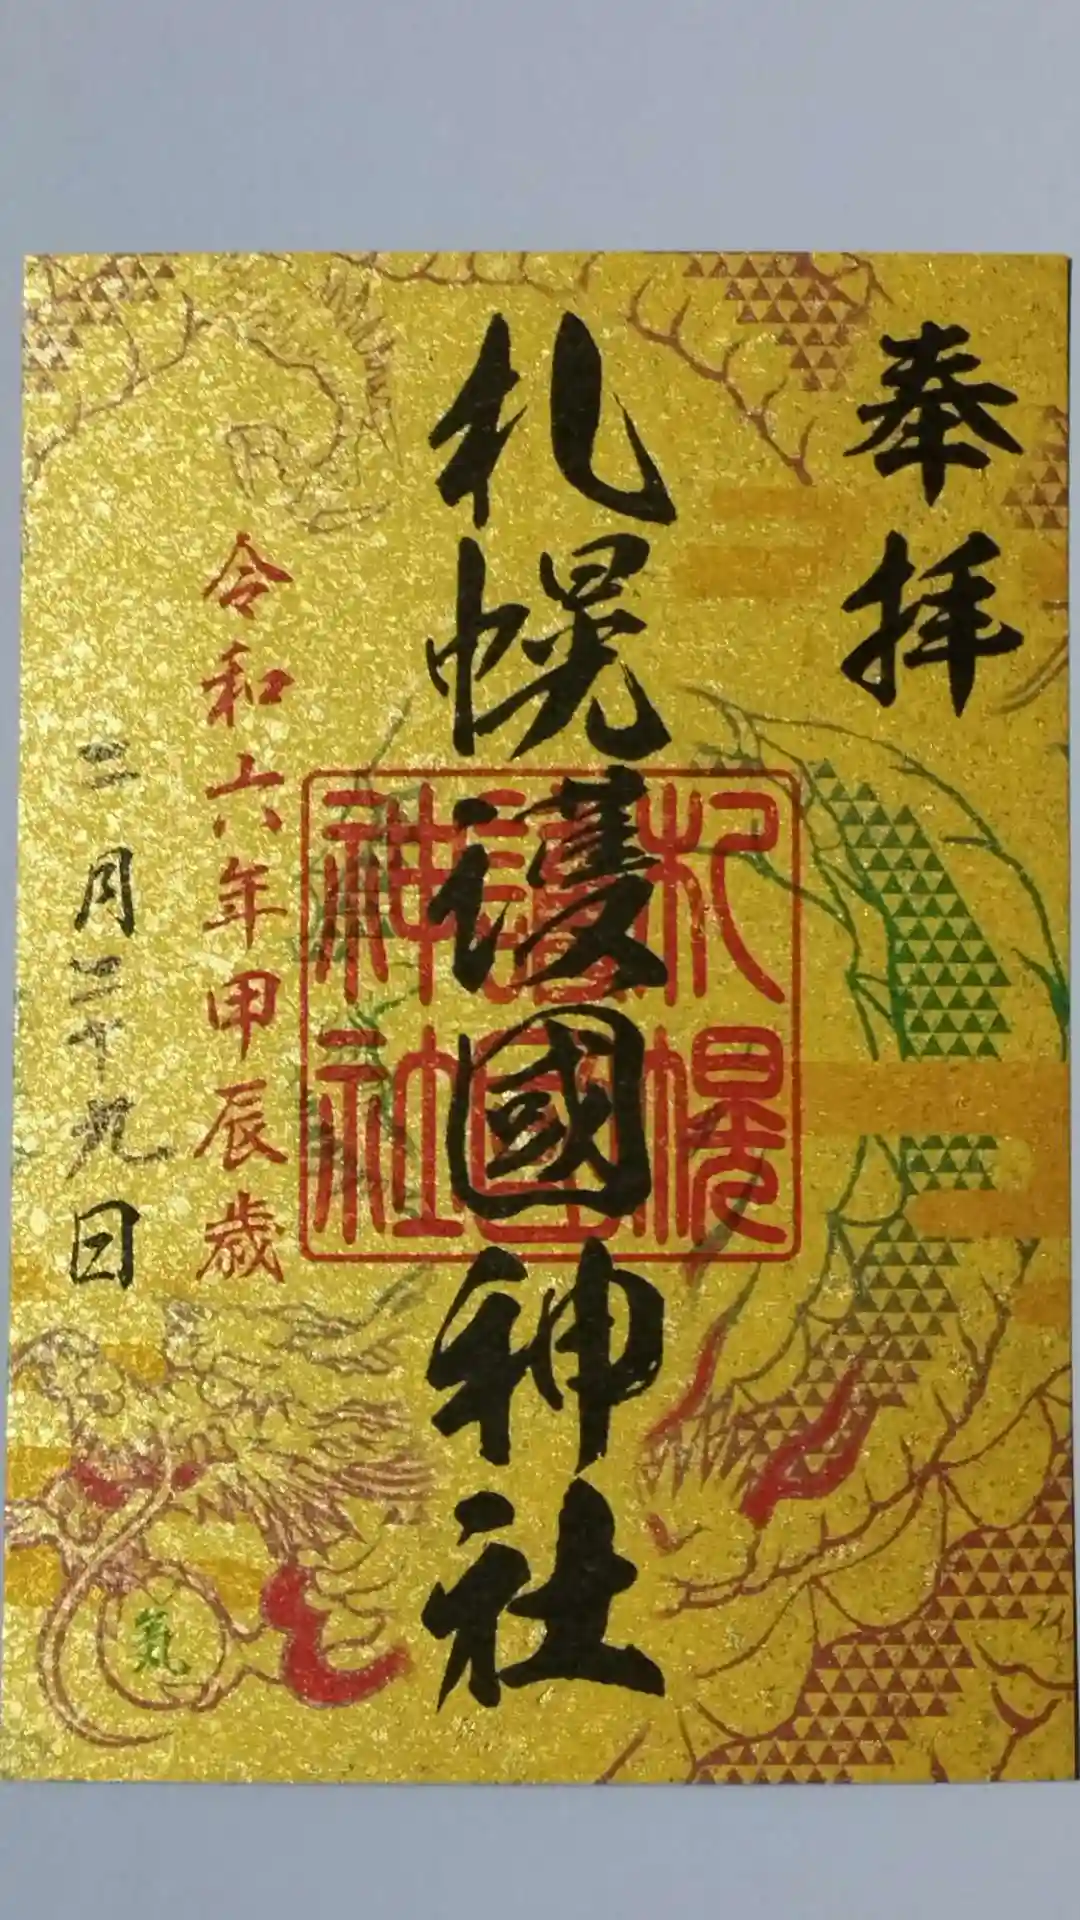 奉拝
札幌護國神社
札幌
護國
神社
令和六年甲辰歳
二月二十九日
氣